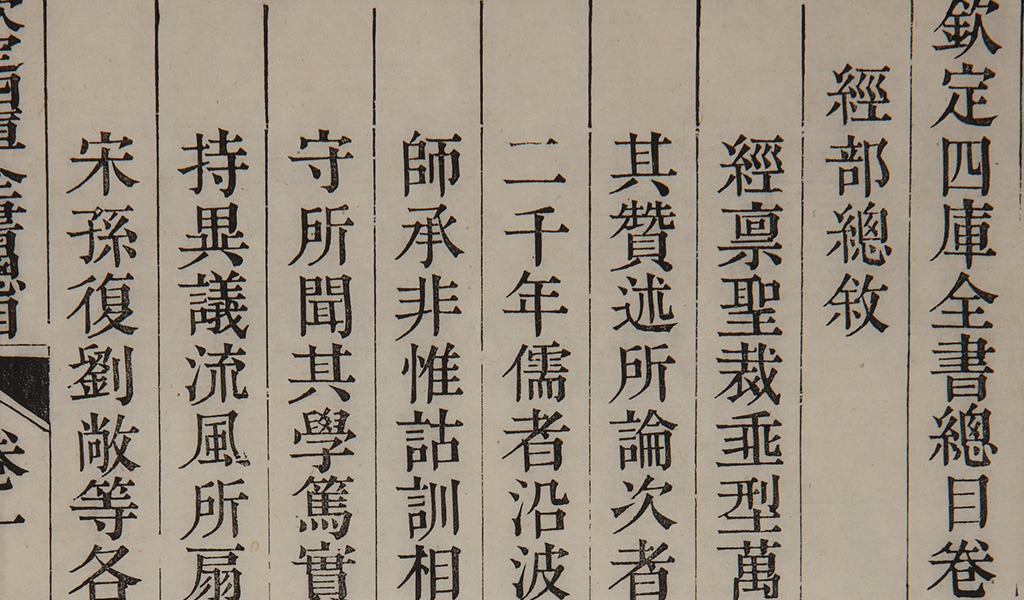 欽定四庫全書總目卷
經部總敘
經禀聖裁垂型萬
其贊述所論次者
二千年儒者沿波
師承非惟詁訓相
守所聞其學篤實
持異議流風所扇
宋孫復劉敞等各
欽定四庫全書總目
卷一